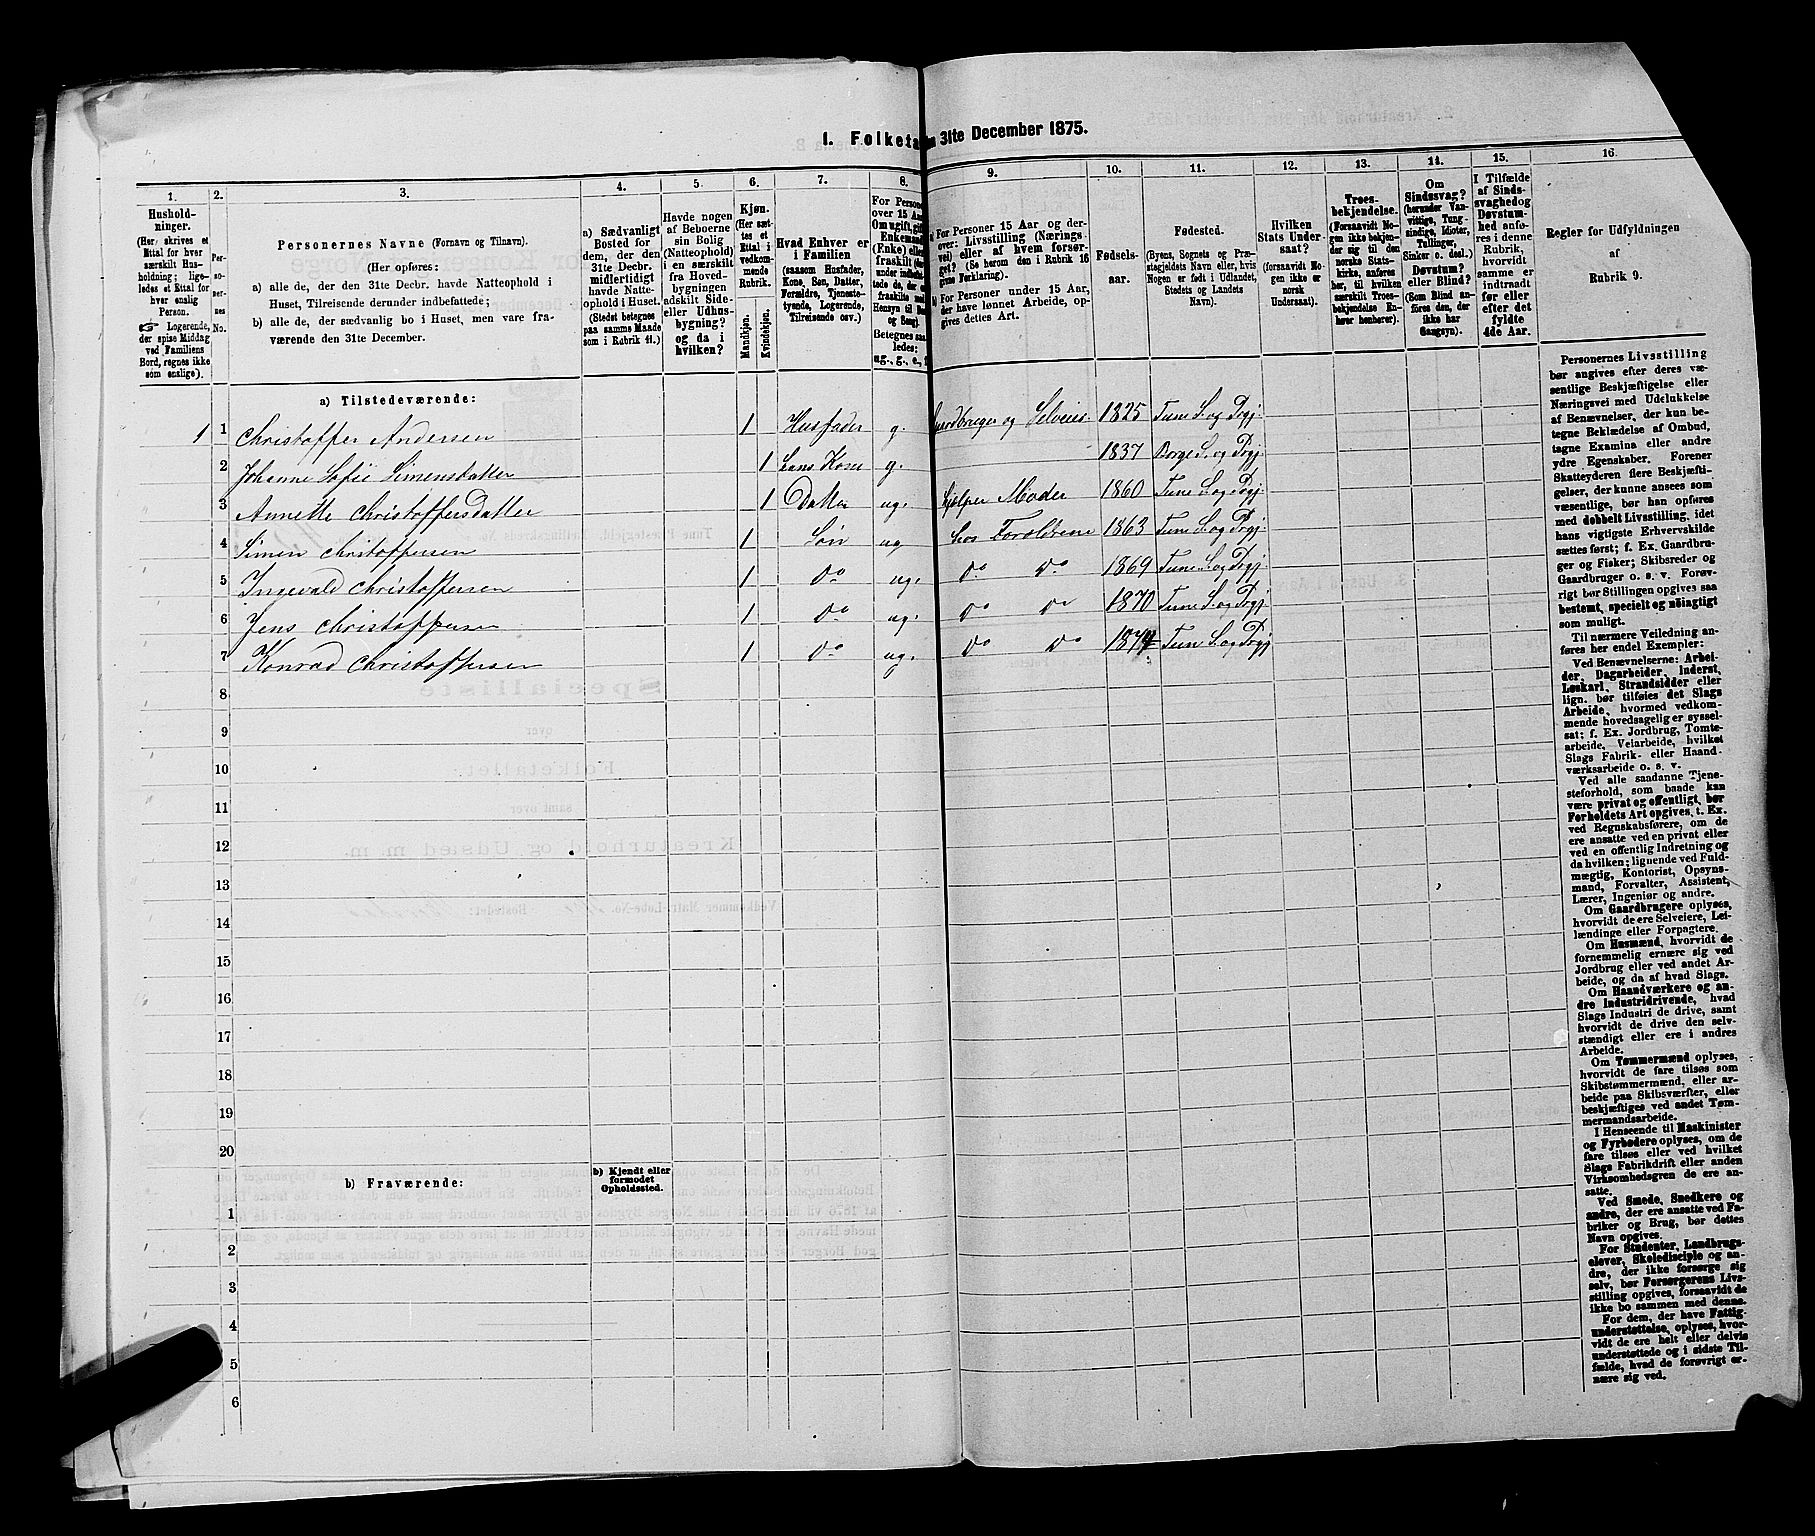 1. Folketa
en 31te December 1875.
1. 2. 3. 4. 5. 6. 7. 8. 9. 10. 11. 12. 13. 14. 15. 16.
Hushold-
ninger.
(Her skrives et
Ettal for hver
særskilt Hus-
holdning; lige-
ledes et Ettal for
hver enslig
Person.
☞ Logerende,
der spise Middag
ved Familiens
Bord, regnes ikke
som enslige).
Per-
so-
ner-
nes
No.
Personernes Navne (Fornavn og Tilnavn).
(Her opføres:
a) alle de, der den 31te Decbr. havde Natteophold i
Huset, Tilreisende derunder indbefattede;
b) alle de, der sædvanlig bo i Huset, men vare fra-
værende den 31te December.
a) Sædvanligt
Bosted for
dem, der den
31te Decbr.
midlertidigt
havde Natte-
ophold i Huset.
(Stedet betegnes
paa samme Maade
som i Rubrik 11.)
Havde nogen
af Beboerne
sin Bolig
(Natteophold)
i en særskilt
fra Hoved-
bygningen
adskilt Side-
eller Udhus-
bygning?
og da i
hvilken?
Kjøn.
(Her sæt-
tes et
Ettal i
vedkom-
mende
Rubrik.
Mandkjøn.
Kvindekjøn.
Hvad Enhver er
i Familien
(saasom Husfader,
Kone, Søn, Datter,
Forældre, Tjeneste-
tyende, Logerende,
Tilreisende osv.)
For Person
over 15 Aar
Om ugift, gift
Enkemand
(Enke) eller
fraskilt
Betegnes saa-
ledes:
ug., g., e., f.
a) For Personer 15 Aar og der-
over: Livsstilling (Nærings-
vei) eller af hvem forsør-
get? (Se herom den i Rubrik 16
givne Forklaring).
b) For Personer under 15 Aar,
der have lønnet Arbeide, op-
gives dettes Art.
Fødsels-
aar.
Fødested.
(Byens, Sognets og Præ-
stegjeldets Navn eller, hvis
Nogen er født i Udlandet,
Stedets og Landets
Navn).
Hvilken
Stats Under-
saat?
(forsaavidt No-
gen ikke er
norsk
Undersaat).
Troes-
bekjendelse.
(Forsaavidt No-
gen ikke bekjen-
der sig til den
norske Stats-
kirke, anføres
her, til hvilken
særskilt Troes-
bekjendelse En-
hver henhører).
Om
Sindssvag?
(herunder Van-
vittige, Tung-
sindige, Idioter,
Tullinger,
Sinker o. desl.)
Døvstum?
eller Blind?
(Som Blind an-
føres den, der
ikke har
Gangsyn).
I Tilfælde
af Sinds-
svaghed og
Døvstum-
hed anfø-
res i denne
Rubrik,
hvorvidt
samme er
indtraadt
før eller
efter det
fyldte
4de Aar.
Regler for Udfyldningen
af
Rubrik 9.
a) Tilstedeværende:
1 1 Christoffer Andersen 1 Husfader g. Gaardbruger og Selveier 1825 Tune S. og Prgj.
2 Johanne Sofie Simensdatter 1 hans Kone g. 1837 Borge S. og Prgj.
3 Annette Christoffersdatter 1 Datter ug. hjelper Moder 1860 Tune S. og Prgj.
4 Simen Christoffersen 1 Søn ug hos Foreldrene 1863 Tune S. og Prgj.
5 Ingevald Christoffersen 1 do ug. do do 1869 Tune S. og Prgj.
6 Jens Christoffersen 1 do ug. do do 1870 Tune S. og Prgj.
7 Konrad Christoffersen 1 do ug. do do 1874 Tune S. og Prgj
8
9
10
11
12
13
14
15
16
17
18
19
20
b) Fraværende:
b) Kjendt eller
formodet
Opholdssted.
1
2
3
4
5
6
Personernes Livsstilling
bør angives efter deres væ-
sentlige Beskjæftigelse eller
Næringsvei med Udelukkelse
af Benævnelser, der kun be-
tegne Beklædelse af Ombud,
tagne Examina eller andre
ydre Egenskaber. Forener
Skatteyderen flere Beskjæfti-
gelser, der kunne ansees som
væsentlige, bør han opføres
med dobbelt Livsstilling, idet
hans vigtigste Erhvervskilde
sættes først; f. Ex. Gaardbru-
ger og Fisker; Skibsreder og
Gaardbruger o. s. v. Forøv-
rigt bør Stillingen opgives saa
bestemt, specielt og nøiagtigt
som muligt.
Til nærmere Veiledning an-
føres her endel Exempler:
Ved Benævnelserne: Arbei-
der, Dagarbeider, Inderst,
Løskarl, Strandsidder eller
lign. bør tilføies det Slags
Arbeide, hvormed vedkom-
mende hovedsagelig er syssel-
sat; f. Ex. Jordbrug, Tomte-
arbeide, Veiarbeide, hvilket
Slags Fabrik- eller Haand-
værksarbeide o. s. v.
Ved alle saadanne Tjene-
steforhold, som baade kan
være privat og offentligt, bør
Forholdets Art opgives, t. Ex.
ved Regnskabsførere, om de
ere ansatte ved en privat eller
ved en offentlig Indretning og
da hvilken; lignende ved Fuld-
mægtig, Kontorist, Opsyns-
mand, Forvalter, Assistent,
Lærer, Ingeniør og andre.
Om Gaardbrugere oplyses,
hvorvidt de ere Selveiere, Lei-
lændinge eller Forpagtere.
Om Husmænd, hvorvidt de
fornemmelig ernære sig ved
Jordbrug eller ved andet Ar-
beide, og da af hvad Slags.
Om Haandværkere og an-
dre Industridrivende, hvad
Slags Industri de drive, samt
hvorvidt de drive den selv-
stændigt eller ere i andres
Arbeide.
Om Tømmermænd oplyses,
hvorvidt de fare tilsøs som
Skibstømmermænd, eller ar-
beide paa Skibsværfter, eller
beskjæftiges ved andet Tøm-
mermandsarbeide.
I Henseende til Maskinister
og Fyrbødere oplyses, om de
fare tilsøs eller ved hvilket
Slags Fabrikdrift eller anden
Virksomhedsgren de ere an-
satte.
Ved Smede, Snedkere og
andre, der ere ansatte ved Fa-
briker og Brug, bør dettes
Navn opgives.
For Studenter, Landbrugs-
elever, Skoledisciple og an-
dre, der ikke forsørge sig
selv, bør Forsørgerens Livs-
stilling opgives, forsaavidt de
ikke bo sammen med denne.
For dem, der have Fattig-
understøttelse, oplyses, hvor-
vidt de ere helt eller delvis
understøttede og i sidste Til-
fælde, hvad de forøvrigt er-
nære sig ved.